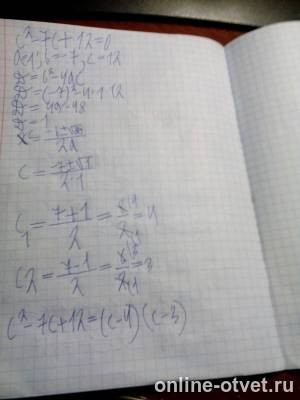 c²-7c+12=0
a=1; b=-7; c=12
D=b²-4ac
D=(-7)²-4·1·12
D=49-48
D=1
x=(-b±√D)/2a
c=(-7±√1)/2·1
c₁=(7+1)/2=8/2=4
c₂=(7-1)/2=6/2=3
c²-7c+12=(c-4)(c-3)
online-otvet.ru